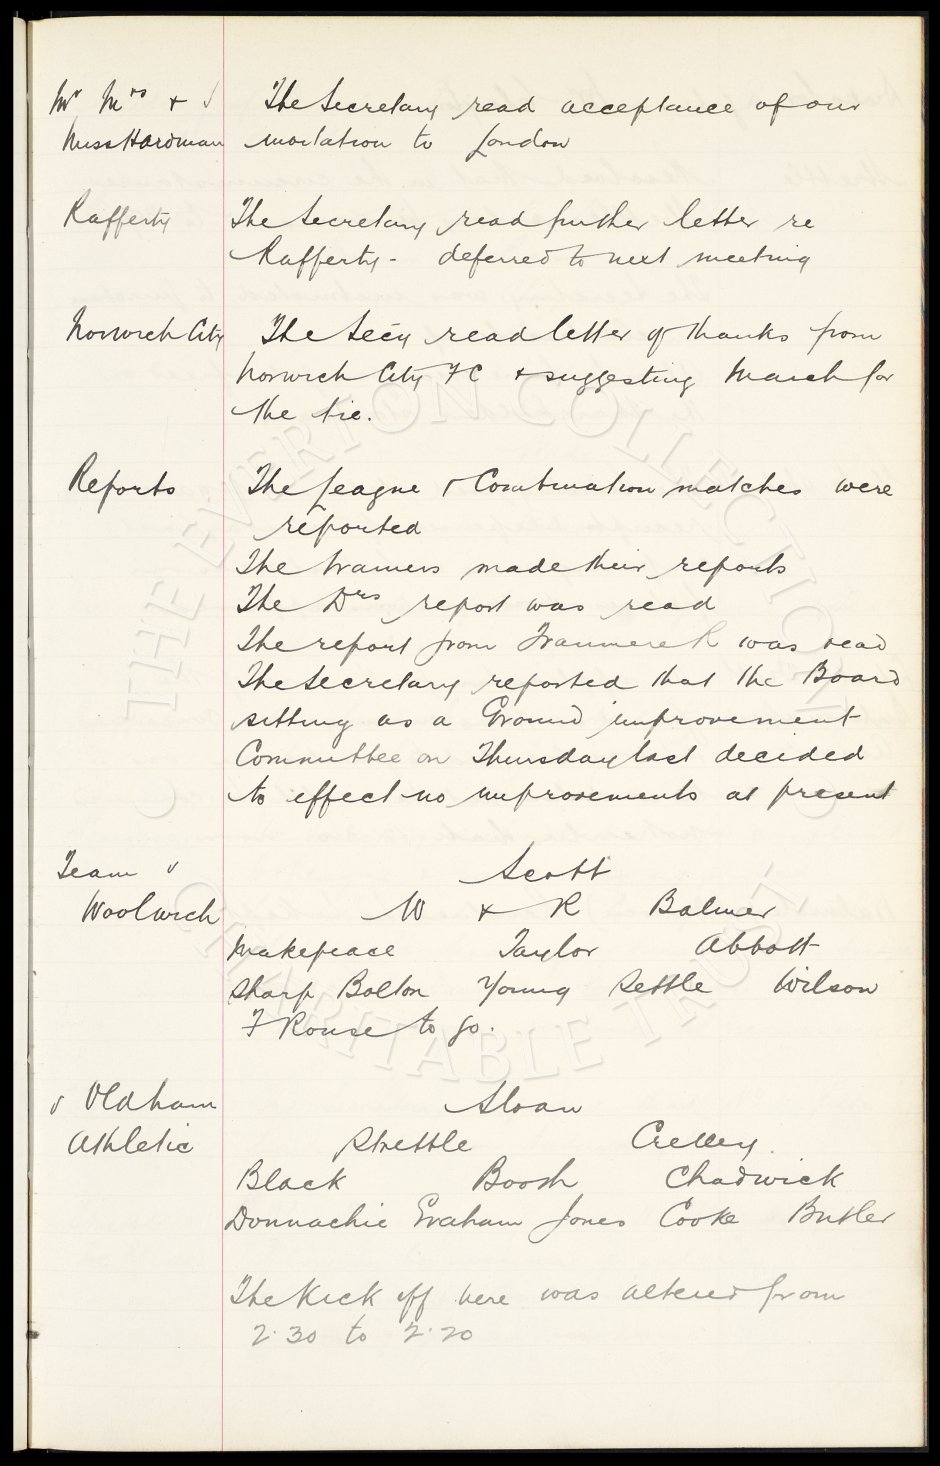 Mr Mrs & The Secretary read acceptance of our
Miss Hardman invitation to London
Rafferty The Secretary read further letter re
Rafferty - deferred to next meeting
Norwich City The Secy read letter of thanks from
Norwich City FC & suggesting March for
the tie.
Reports The League & Combination matches were
reported
The trainers made their reports
The Drs report was read
The report from Tranmere R was read
The Secretary reported that the Board
sitting as a Ground improvement
Committee on Thursday last decided
to effect no improvements at present
Team v Scott
Woolwich W & R Balmer
Makepeace Taylor Abbott
Sharp Bolton Young Settle Wilson
F Rouse to go.
v Oldham Sloan
Athletic Strettle Crelley
Black Booth Chadwick
Donnachie Graham Jones Cooke Butler
The Kick off here was altered from
2.30 to 2.20
© THE EVERTON COLLECTION
CHARITABLE TRUST